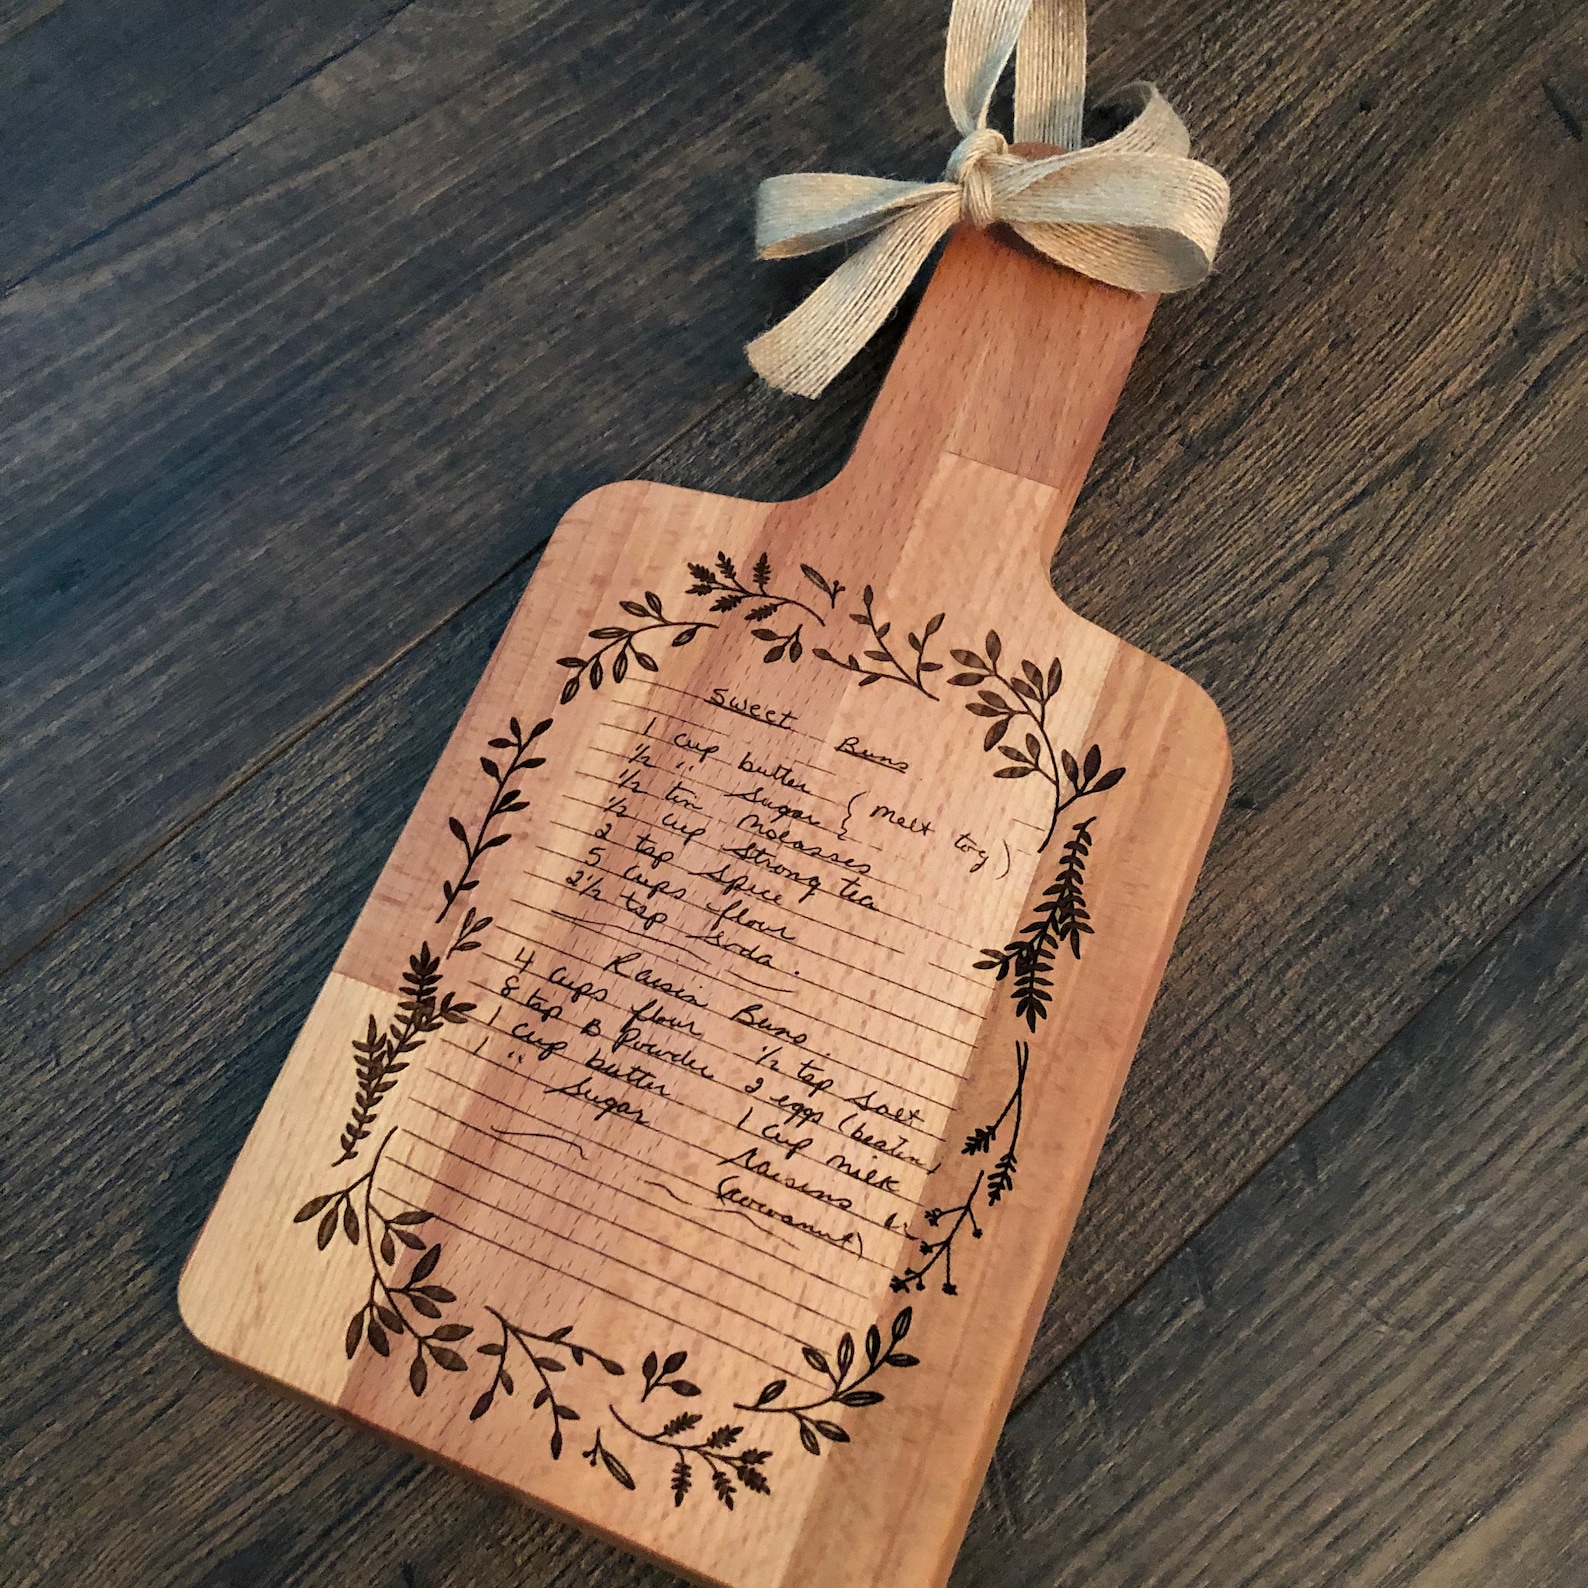 Sweet Buns
1 cup butter ( melt tog )
1/2 " sugar
1/2 tin molasses
1/2 cup strong tea
2 tsp spice
5 cups flour
2 1/2 tsp soda.
Raisin Buns.
4 cups flour 1/2 tsp salt
8 tsp B Powder 2 eggs (beaten)
1 cup butter 1 cup milk
1 " sugar raisins or
(currant)